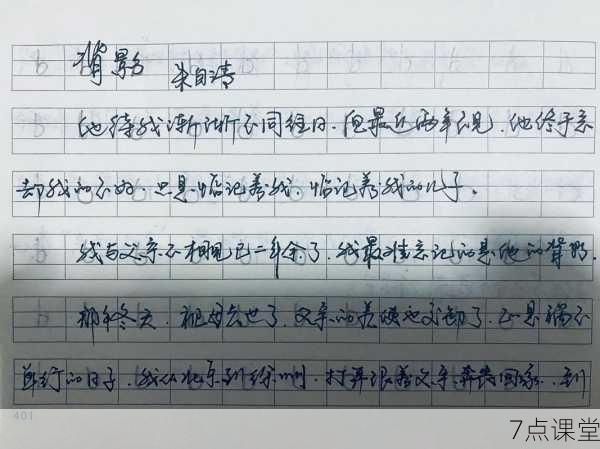 背影 朱自清
他待我渐渐不同往日。但最近两年不见，他终于忘
却我的不好，只是惦记着我，惦记着我的儿子。
我与父亲不相见已二年余了，我最难忘记的是他的背影。
那年冬天，祖母去世了，父亲的差使也交卸了，正是祸不
单行的日子，我从北京到徐州，打算跟着父亲奔丧回家。到
401
7点课堂